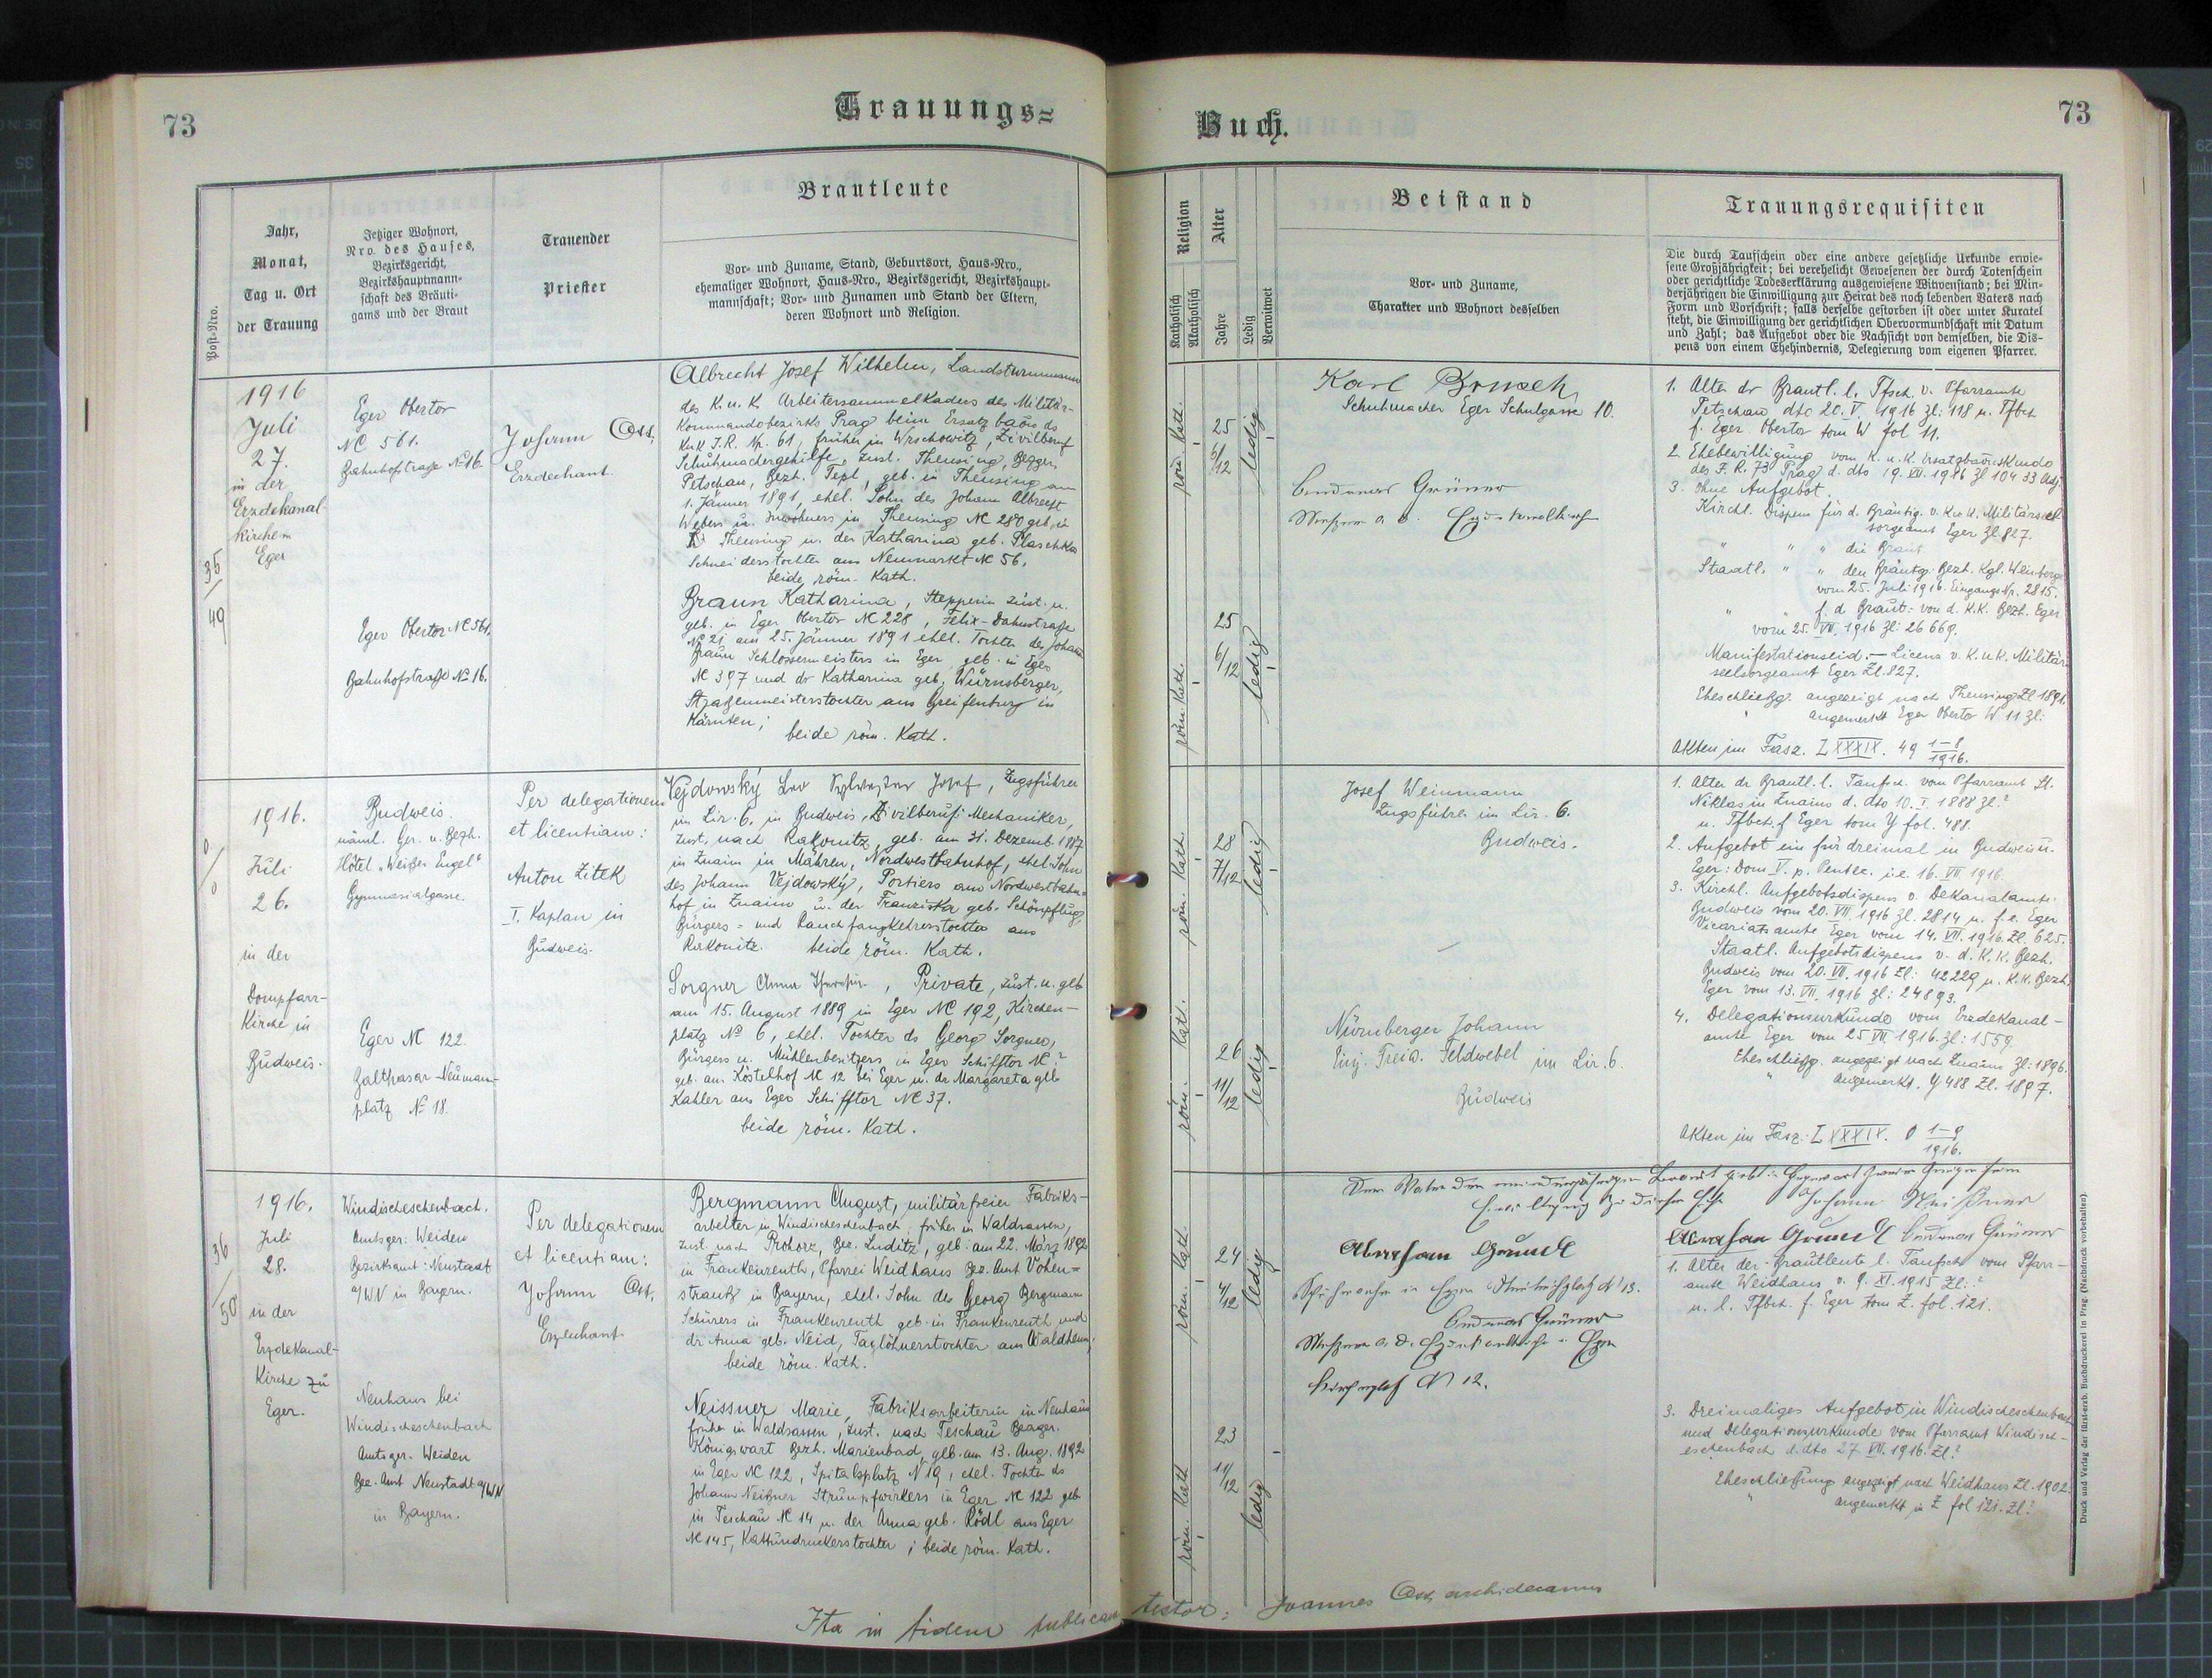 73
Trauungs=
Post-Nro.
Jahr,
Monat,
Tag u. Ort
der Trauung
Jetziger Wohnort,
Nro. des Hauses,
Bezirksgericht,
Bezirkshauptmann-
schaft des Bräuti-
gams und der Braut
Trauender
Priester
Brautleute
Vor- und Zuname, Stand, Geburtsort, Haus-Nro.,
ehemaliger Wohnort, Haus-Nro., Bezirksgericht, Bezirkshaupt-
mannschaft; Vor- und Zunamen und Stand der Eltern,
deren Wohnort und Religion.
35/49
1916
Juli
27.
in der
Erzdekanal-
kirche in
Eger
Eger Obertor
NC 561.
Bahnhofstraße No 16.
Eger Obertor NC 561.
Bahnhofstraße No 16.
Johann Öst,
Erzdechant.
Albrecht Josef Wilhelm, Landsturmmann
des K.u.K. Arbeitersammelkaders des Militär-
kommandobezirks Prag beim Ersatzbaon ds
KuK I.R. Nr. 61, früher in Wrschowitz, Zivilberuf
Schuhmachergehilfe, zust. Theusing, Bezger.
Petschau, Bezh. Tepl, geb. in Theusing am
1. Jänner 1891, ehel. Sohn des Johann Albrecht
Webers u. Inwohners in Theusing NC 280 geb. in
Theusing u. der Katharina geb. Plaschka
Schneiderstochter aus Neumarkt NC 56.
beide röm. Kath.
Braun Katharina, Stepperin zust. u.
geb. in Eger Obertor NC 228, Felix-Dahnstraße
No 21 am 25. Jänner 1891 ehel. Tochter des Johann
Braun Schlossermeisters in Eger, geb. in Eger
NC 397 und dr Katharina geb. Würnsberger,
Straßenmeisterstochter aus Greifenburg in
Kärnten;
beide röm. Kath.
0/0
1916.
Juli
26.
in der
Dompfarr-
Kirche in
Budweis.
Budweis.
näml. Ger. u. Bezh.
Hôtel "Weißer Engel"
Gymnasialgasse.
Eger NC 122.
Balthasar-Neumann-
platz No 18.
Per delegationem
et licentiam:
Anton Zitek
I. Kaplan in
Budweis.
Vejdowský Leo Sylvester Josef, Zugsführer
im Lir. 6. in Budweis, Zivilberuf: Mechaniker,
zust. nach Rakonitz, geb. am 31. Dezemb. 1887
in Znaim in Mähren, Nordwestbahnhof, ehel. Sohn
des Johann Vejdowský, Portiers am Nordwestbahn-
hof in Znaim u. der Franziska geb. Schönpflug,
Bürgers- und Rauchfangkehrerstochter aus
Rakonitz. beide röm. Kath.
Sorgner Anna, Private, zust. u. geb
am 15. August 1889 in Eger NC 192, Kirchen-
platz No 6, ehel. Tochter ds Georg Sorgner,
Bürgers u. Mühlenbesitzers in Eger Schifftor NC ?
geb. am Köstelhof NC 12 bei Eger u. dr Margareta geb
Kahler aus Eger Schifftor NC 37.
beide röm. Kath.
36/50
1916.
Juli
28.
in der
Erzdekanal-
Kirche zu
Eger.
Windischeschenbach.
Amtsger: Weiden
Bezirksamt: Neustadt
a/WN in Bayern.
Neuhaus bei
Windischeschenbach
Amtsger. Weiden
Bez. Amt Neustadt a/WN
in Bayern.
Per delegationem
et licentiam:
Johann Öst,
Erzdechant.
Bergmann August, militärfreier Fabriks-
arbeiter in Windischeschenbach, früher in Waldsassen,
zust. nach Prohorz, Bez. Luditz, geb. am 22. März 1892
in Frankenreuth, Pfarrei Weidhaus Bez. Amt Vohen=
strauß in Bayern, ehel. Sohn des Georg Bergmann
Schürers in Frankenreuth geb. in Frankenreuth und
dr Anna geb. Neid, Taglöhnerstochter aus Waldheim.
beide röm. Kath.
Neissner Marie, Fabriksarbeiterin in Neuhaus
früher in Waldsassen, zust. nach Teschau Bezger.
Königswart Bezh. Marienbad, geb. am 13. Aug. 1892
in Eger NC 122, Spitalsplatz No 19, ehel. Tochter ds
Johann Neißner Strumpfwirkers in Eger NC 122 geb
in Teschau NC 14 u. der Anna geb. Rödl aus Eger
NC 145, Kattundruckerstochter; beide röm. Kath.
Ita in fidem publicam
73
Buch.
Religion
Katholisch
Akatholisch
Alter
Jahre
Ledig
Verwitwet
Beistand
Vor- und Zuname,
Charakter und Wohnort desselben
Trauungsrequisiten
Die durch Taufschein oder eine andere gesetzliche Urkunde erwie-
sene Großjährigkeit; bei verehelicht Gewesenen der durch Totenschein
oder gerichtliche Todeserklärung ausgewiesene Witwenstand; bei Min-
derjährigen die Einwilligung zur Heirat des noch lebenden Vaters nach
Form und Vorschrift; falls derselbe gestorben ist oder unter Kuratel
steht, die Einwilligung der gerichtlichen Obervormundschaft mit Datum
und Zahl; das Aufgebot oder die Nachsicht von demselben, die Dis-
pens von einem Ehehindernis, Delegierung vom eigenen Pfarrer.
röm. Kath.
25
6/12
ledig
röm. Kath.
25
6/12
ledig
Karl
Schuhmacher Eger Schulgasse 10.
Andreas Grüner
1. Alter dr Brautl. l. Tfsch. v. Pfarramte
Petschau, dto 20. V. 1916 Zl: 118 u. Tfbch
f. Eger Obertor tom W fol 11.
2. Ehebewilligung vom K. u. K. Ersatzbaons Kmdo
des I. R. 73 Prag d. dto 19. VII. 1916 Zl 104 33 Adj.
3. Ohne Aufgebot.
Kirchl. Dispens für d. Bräutig. v. K. u. K. Militärseel-
sorgeamt Eger Zl. 827.
" " " die Braut
Staatl. " " den Bräutg. Bezh. Kgl. Weinberge
vom 25. Juli 1916. Eingangs Np. 2815.
" " f. d Braut: von d. K.K. Bezh. Eger
vom 25. VII. 1916 Zl: 26 669.
Manifestationseid: — Licenz v. K. u. K. Militär-
seelsorgeamt Eger Zl. 827.
Eheschließg. angezeigt nach Theusing Zl 1891.
" angemerkt Eger Obertor W 11 Zl:
Akten im Fasz. LXXXIX. 49 1-8/1916.
röm. Kath.
28
7/12
ledig
röm. Kat.
26
11/12
ledig
Josef Weinmann
Zugsführer im Lir. 6.
Budweis.
Nürnberger Johann
Einj. Freiw. Feldwebel im Lir. 6.
Budweis
1. Alter dr Brautl. l. Taufsch. vom Pfarramt St.
Niklas in Znaim d. dto 10. I. 1888 Zl. ?
u. Tfbch. f Eger tom Y fol. 488.
2. Aufgebot ein für dreimal in Budweis u.
Eger: Dom V. p. Pentec. i.e. 16. VII 1916.
3. Kirchl. Aufgebotsdispens v. Dekanalamte
Budweis vom 20. VII. 1916 Zl. 2814 u. f. e. Eger
Vicariatsamte Eger vom 14. VII. 1916. Zl. 625.
Staatl. Aufgebotsdispens v. d. K. K. Bezh.
Budweis vom 20. VII. 1916 Zl: 42229 u. K.K. Bezh.
Eger vom 13. VII. 1916 Zl: 24893.
4. Delegationsurkunde vom Erzdekanal-
amte Eger vom 25 VII. 1916. Zl: 1559.
Eheschließg. angezeigt nach Znaim Zl: 1896.
" Angemerkt. Y 488 Zl. 1897.
Akten im Fasz: LXXXIX. 0 1-9/1916.
röm. Kath
24
4/12
ledig
röm. Kath
23
11/12
ledig
Der Vater der minderjährigen Braut gibt in Gegenwart zweier Zeugen seine
Einwilligung zu dieser Ehe Johann Neißner
Abraham Andreas Grüner
Abraham
Andreas Grüner
Kirchenplatz No 12.
1. Alter der Brautleute l. Taufsch vom Pfarr-
amte Weidhaus v. 9. XI. 1915 Zl: ?
u. l. Tfbch. f. Eger tom Z. fol. 121.
3. Dreimaliges Aufgebot in Windischeschenbach
und Delegationsurkunde vom Pfarramt Windisch-
eschenbach d. dto 27 VII. 1916. Zl ?
Eheschließung angezeigt nach Weidhaus Zl. 1902.
" angemerkt in Z fol 121. Zl. ?
testor: Joannes Öst, archidecanus
Druck und Verlag der fürst-erzb. Buchdruckerei in Prag. (Nachdruck vorbehalten).